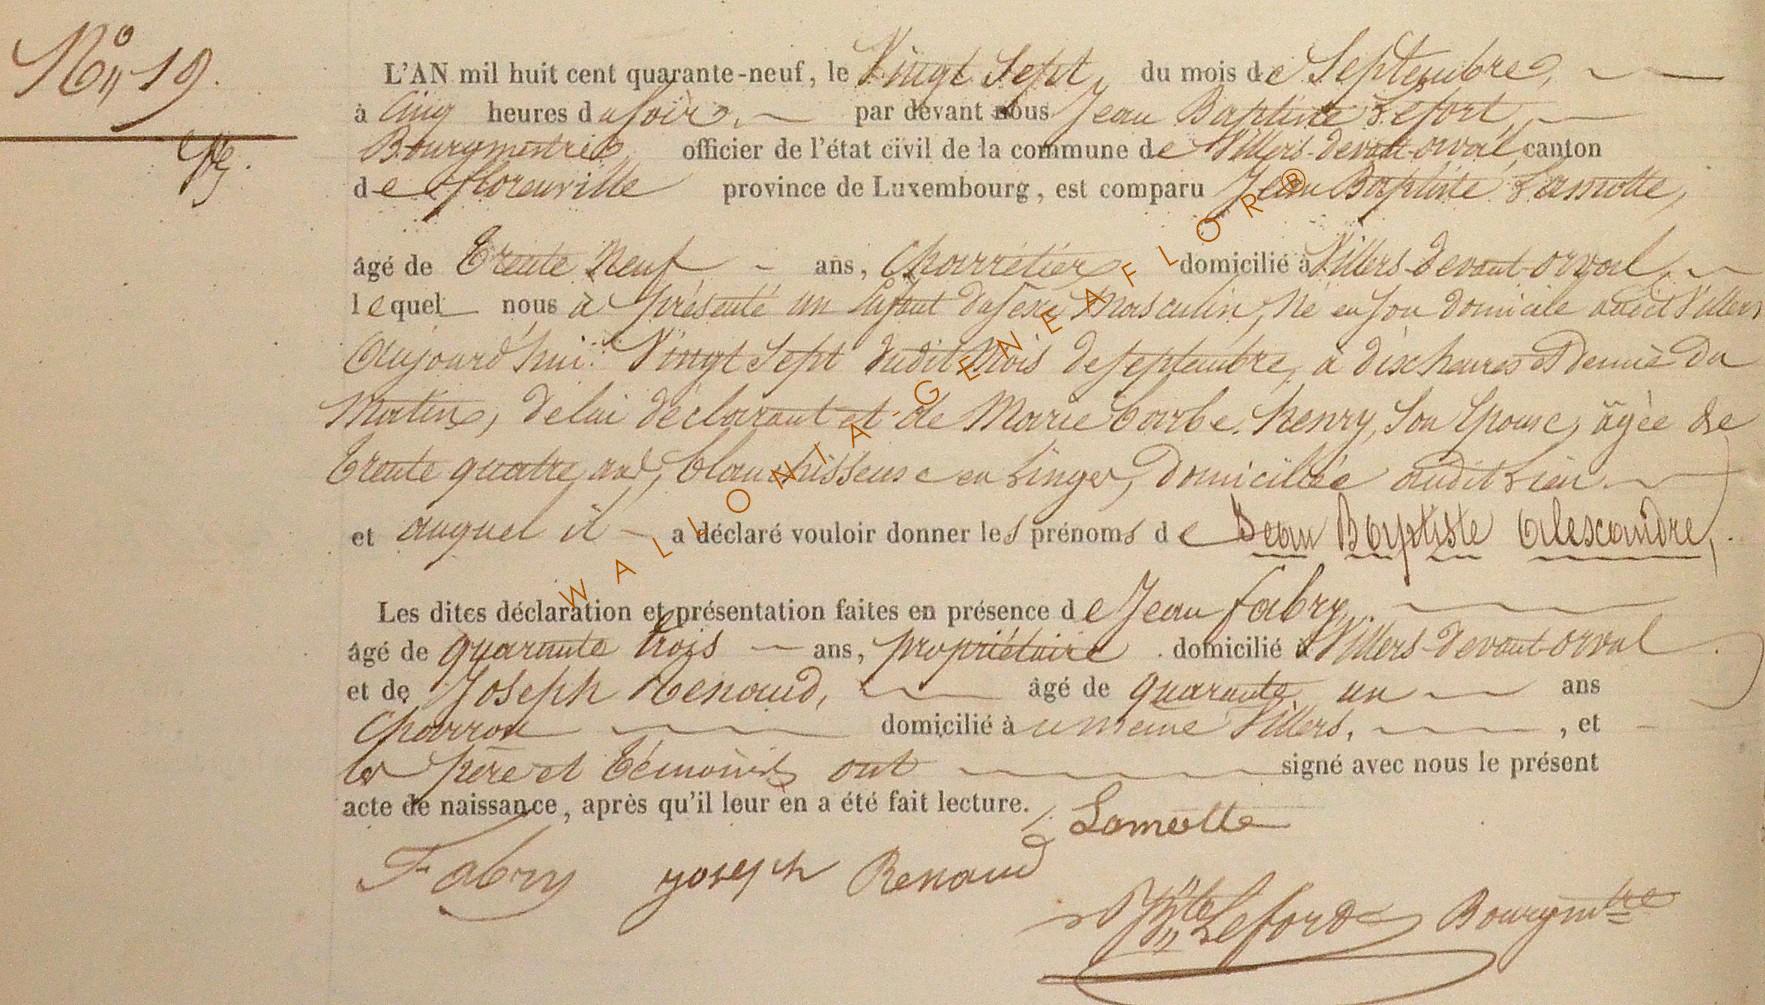 N° 19.
L'AN mil huit cent quarante-neuf, le Vingt Sept, du mois de Septembre,
à Cinq heures du soir, par devant nous Jean Baptiste Lefort,
Bourgmestre, officier de l'état civil de la commune de Villers-devant-orval, canton
de florenville province de Luxembourg, est comparu Jean Baptiste Lamotte,
âgé de Trente Neuf ans, Charretier domicilié à Villers-devant-orval,
lequel nous a présenté un Enfant du sexe Masculin, né en son domicile audit Villers
Aujourd'hui Vingt Sept dudit Mois de septembre, à dix heures et Demie du
Matin, de lui déclarant et de Marie barbe henry, son Epouse, âgée de
Trente quatre ans, blanchisseuse en Linge, Domiciliée audit Lieu.
et auquel il a déclaré vouloir donner les prénoms de Jean Baptiste Alexandre,
Les dites déclaration et présentation faites en présence de Jean fabry,
âgé de quarante trois ans, propriétaire domicilié à Villers-devant-orval
et de Joseph Renaud, âgé de quarante un ans
Charron domicilié à même Villers, , et
les père et témoins ont signé avec nous le présent
acte de naissance, après qu'il leur en a été fait lecture.
Lamotte
Fabry Joseph Renaud
J Bte Lefort Bourgmtre
WALLONIA-GENEAFLOR®